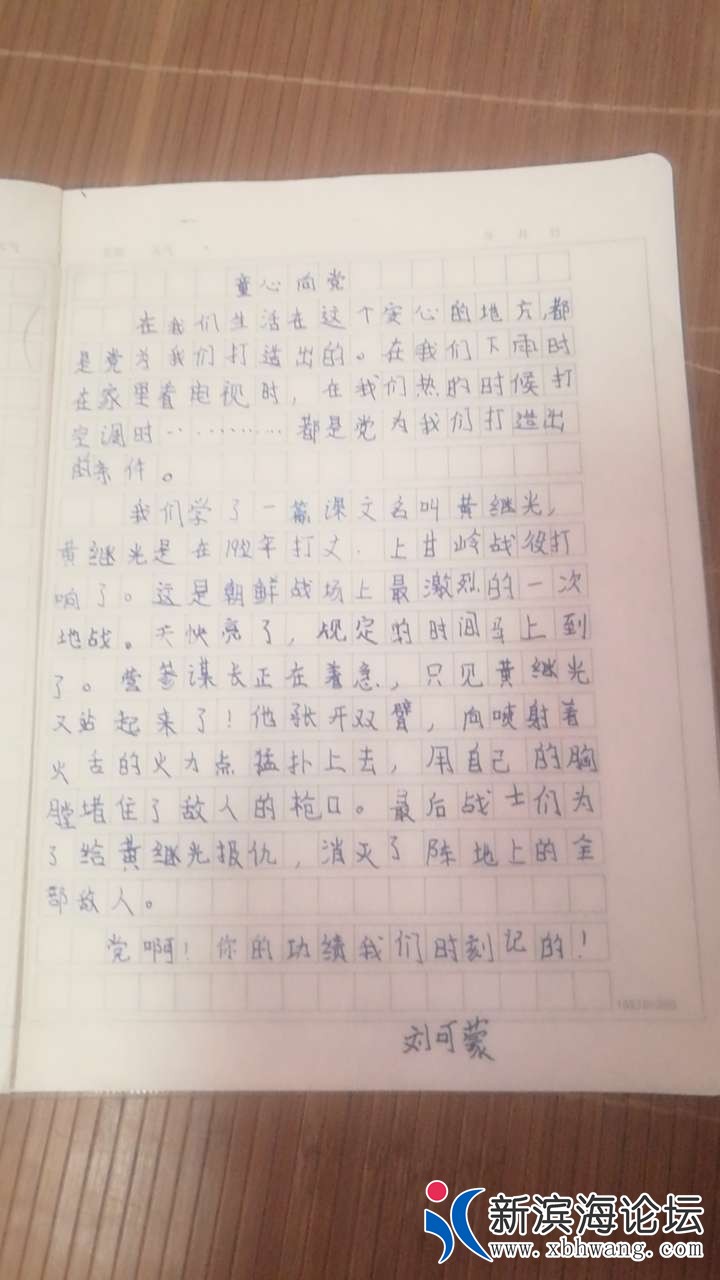 童心向党
在我们生活在这个安心的地方,都
是党为我们打造出的。在我们下雨时
在家里看电视时，在我们热的时候打
空调时…………都是党为我们打造出
的条件。
我们学了一篇课文名叫黄继光，
黄继光是在1952年打文．上甘岭战役打
响了。这是朝鲜战场上最激烈的一次
地战。天快亮了，规定的时间马上到
了。营参谋长正在着急，只见黄继光
又站起来了！他张开双臂，向喷射着
火舌的火力点猛扑上去，用自己的胸
膛堵住了敌人的枪口。最后战士们为
了给黄继光报仇，消灭了阵地上的全
部敌人。
党啊！你的功绩我们时刻记的！
刘可蒙
新滨海论坛
www.xbhwang.com